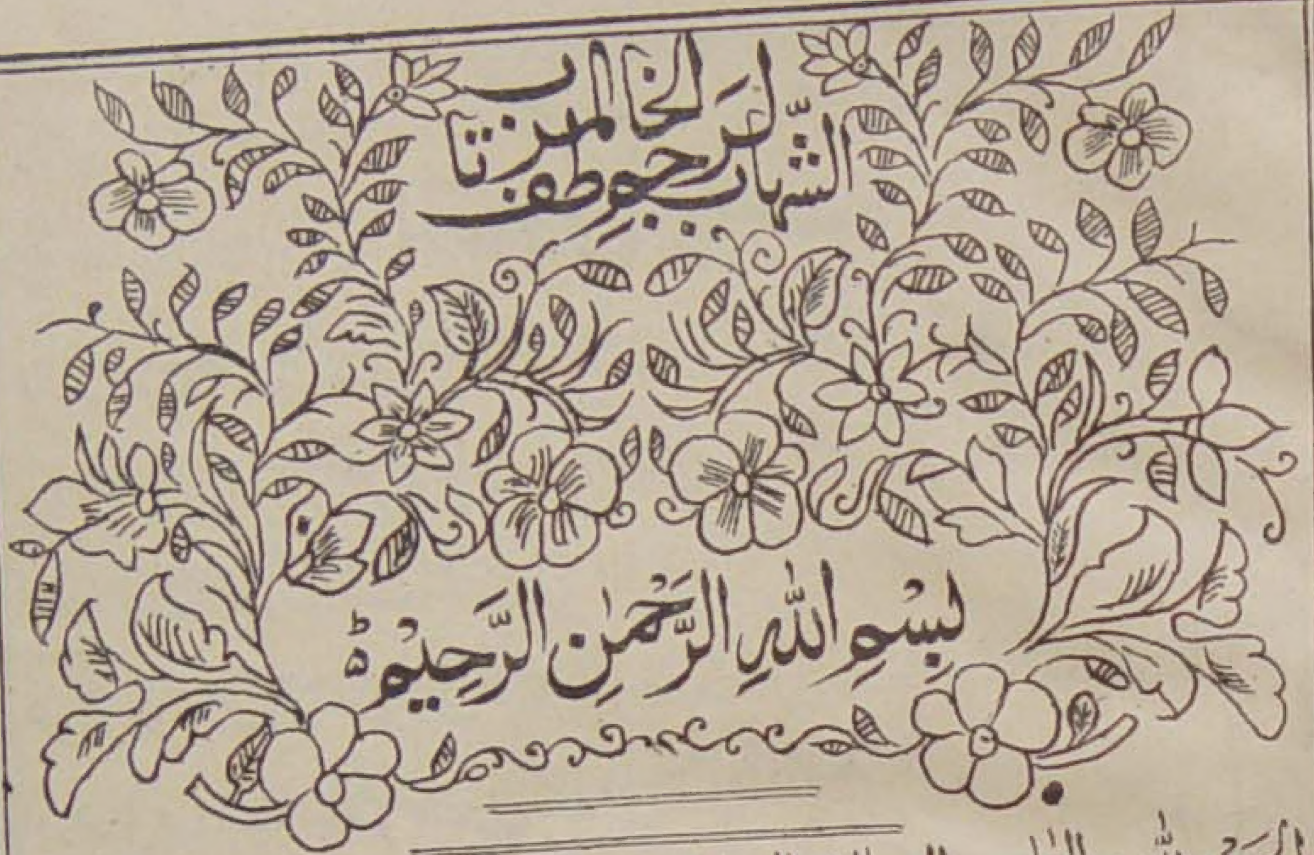 الشّهاب لرَجم الخاطف المرتاب
بِسْمِ اللّٰهِ الرَّحْمٰنِ الرَّحِيْمِ ؕ